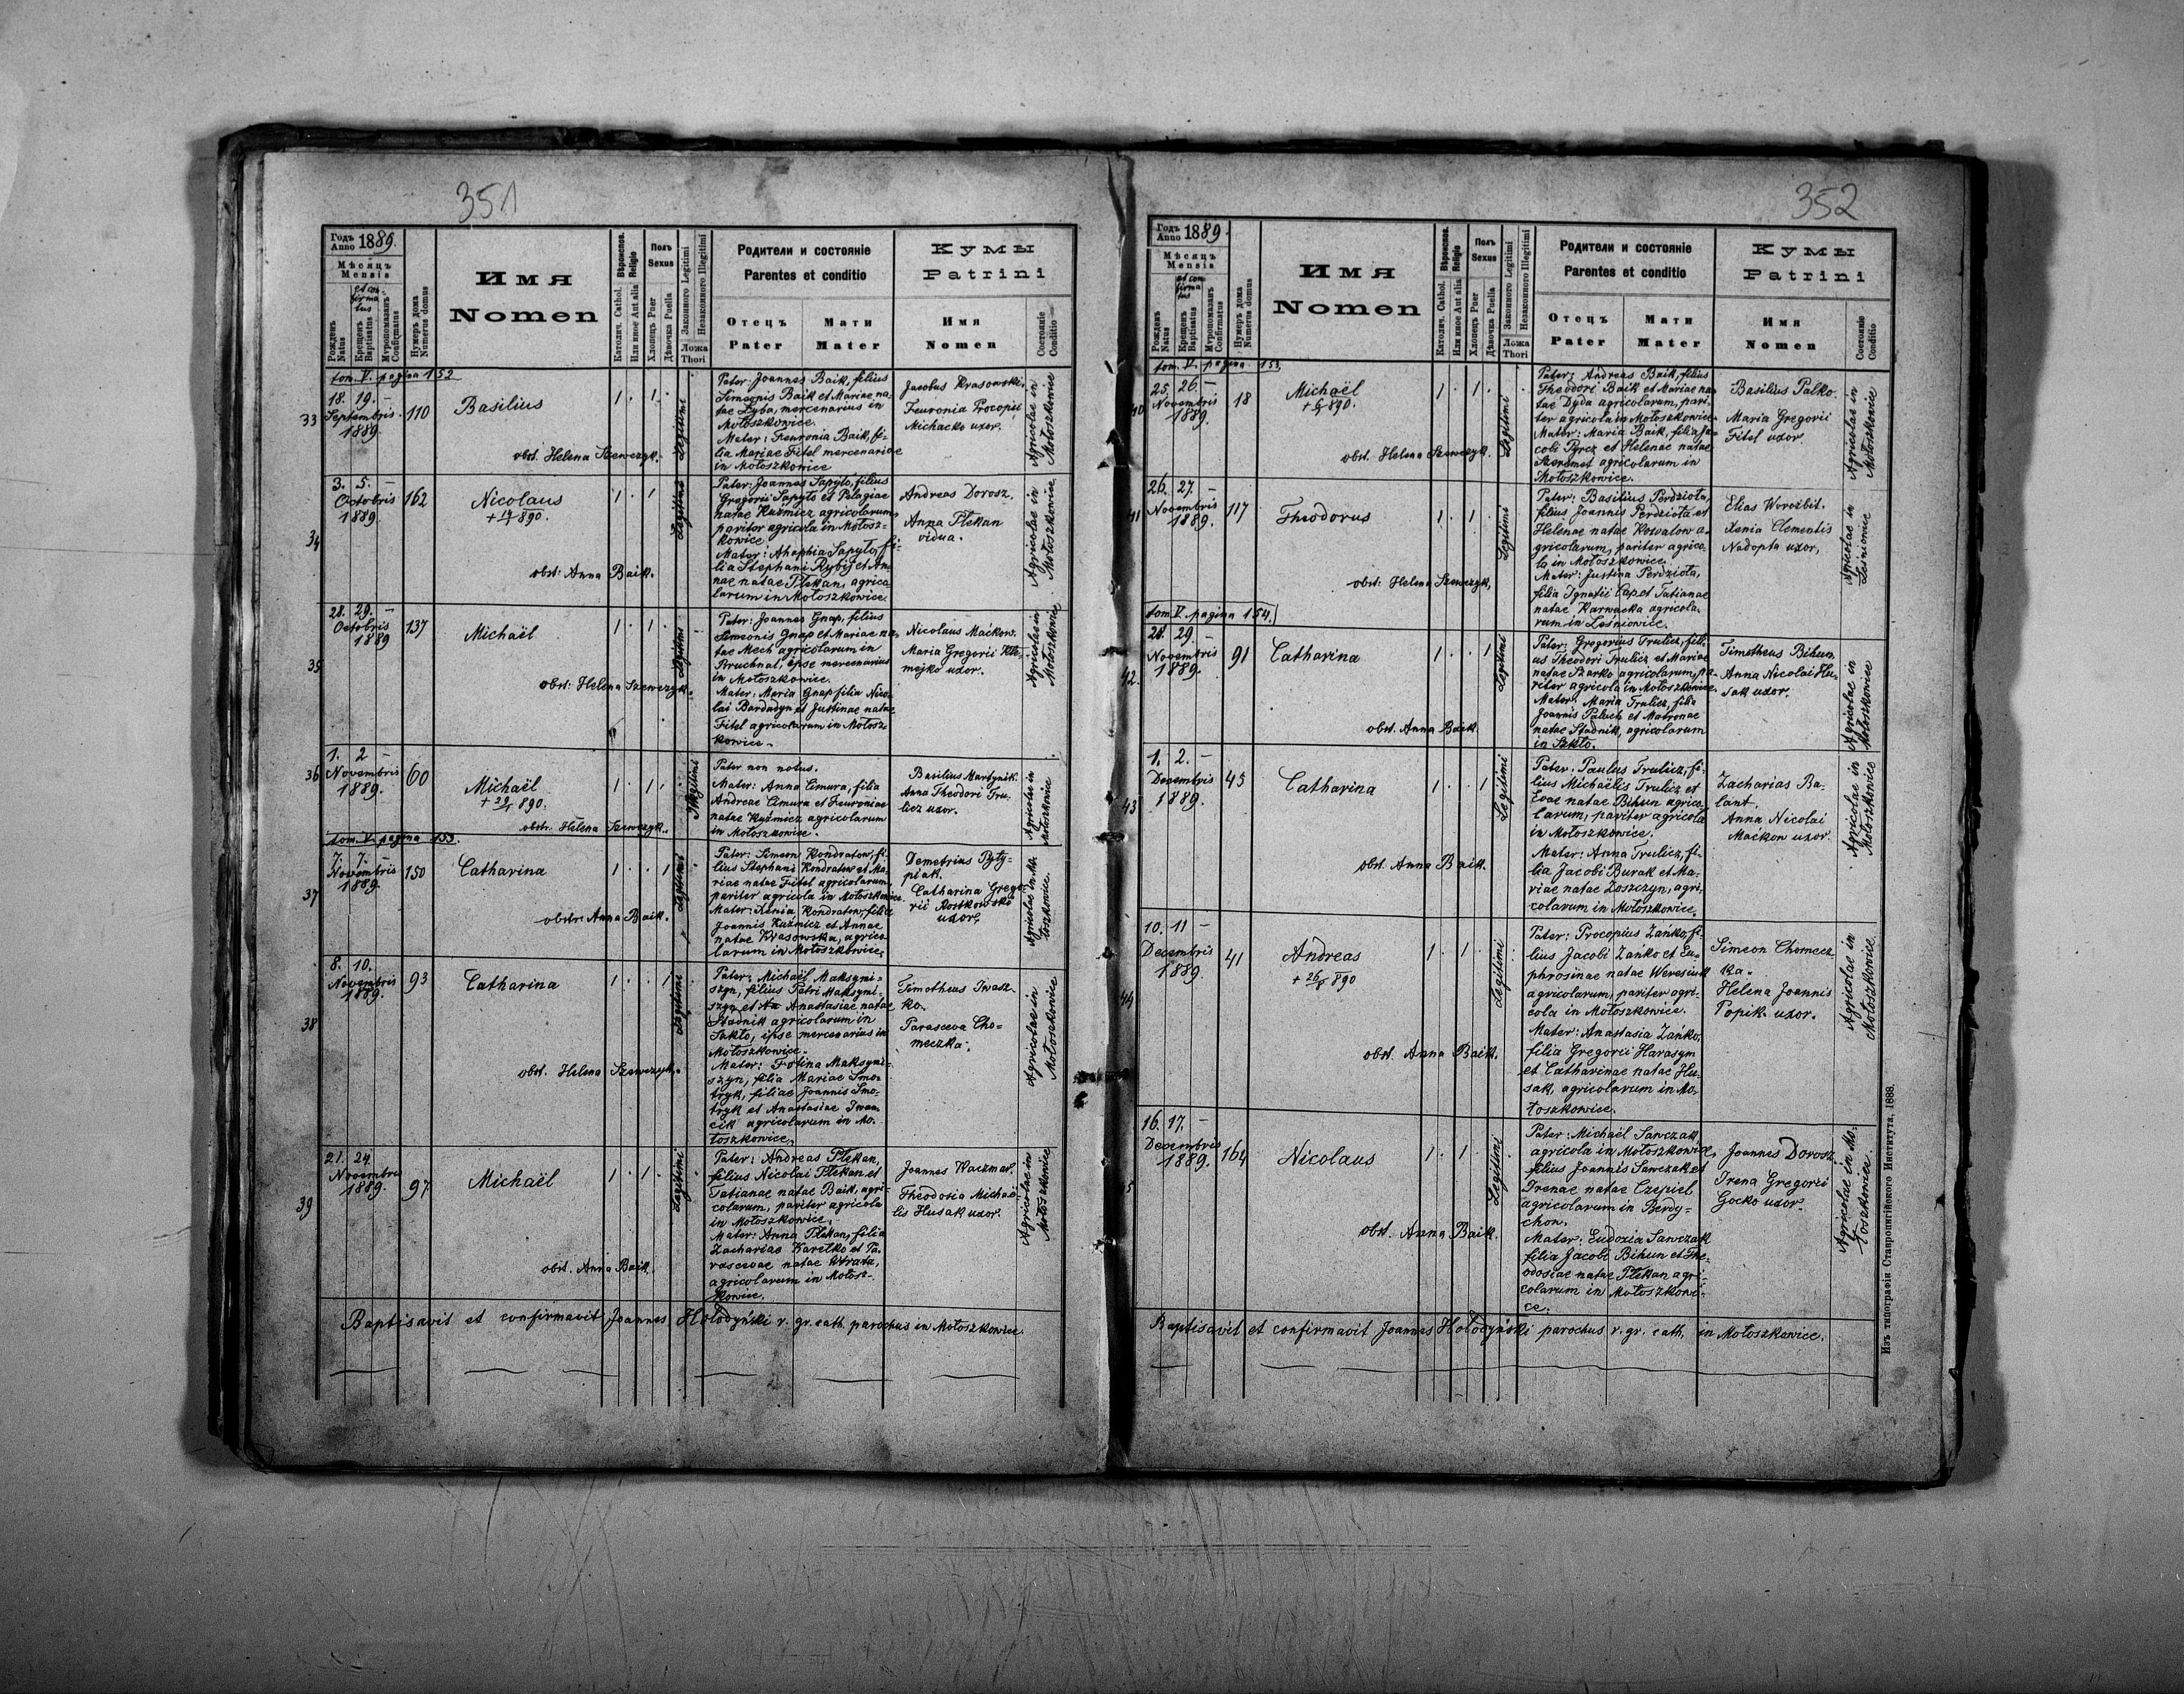 351
Годъ Anno 1889.
Мѣсяцъ
Mensis
Рожденъ Natus
Крещенъ Baptisatus et confirmatus
Мѵропомазанъ Confirmatus
Нумеръ дома Numerus domus
Имя
Nomen
Вѣроиспов. Religio
Католич. Cathol.
Или иное Aut alia
Полъ
Sexus
Хлопецъ Puer
Дѣвочка Puella
Законного Legitimi
Незаконного Illegitimi
Ложа
Thori
Родители и состоянiе
Parentes et conditio
Отецъ
Pater
Мати
Mater
Кумы
Patrini
Имя
Nomen
Состоянiе
Conditio
tom. V. pagina 152
33
18. 19. –
Septembris
1889.
110
Basilius
1 . 1 .
Legitimi
obst. Helena Szewczyk.
Pater: Joannes Baik, filius
Simeonis Baik et Mariae na-
tae Dyba, mercenarius in
Mołoszkowice.
Mater: Feuronia Baik, fi-
lia Mariae Fitel mercenariae
in Mołoszkowice
Jacobus Krasowski.
Feuronia Procopii
Michacko uxor.
Agricolae in
Mołoszkowice
34
3. 5. –
Octobris
1889
162
Nicolaus
obst: Anna Baik.
1 . 1
Legitimi
Pater: Joannes Sapyło, filius
Gregorii Sapyło et Pelagiae
natae Kuźmicz agricolarum
pariter agricola in Mołosz-
kowice
Mater: Ahaphia Sapyło, fi-
lia Stephani Rybij et An-
nae natae Plekan, agrico
larum in Mołoszkowice.
Andreas Dorosz.
Anna Plekan
vidua.
Agricolae in
Mołoszkowice
35
28. 29. –
Octobris
1889
137
Michaël
1 . 1 .
Legitimi
obst: Helena Szewczyk.
Pater: Joannes Gnap, filius
Simeonis Gnap et Mariae na-
tae Mech agricolarum in
Bruchnal, ipse mercenarius
in Mołoszkowice.
Mater: Maria Gnap filia Nico-
lai Bardadyn et Justinae natae
Fitel agricolarum in Mołosz-
kowice.
Nicolaus Maćkow.
Maria Gregorii Kle-
mejko uxor.
Agricolae in
Mołoszkowice.
36
1. 2 –
Novembris
1889.
60
Michaël
1 . 1 .
Illegitimi
obstr. Helena Szewczyk.
Pater non notus.
Mater: Anna Cimura, filia
Andreae Cimura et Feuroniae
natae Kuźmicz agricolarum
in Mołoszkowice.
Basilius Martynik.
Anna Theodori Tru-
licz uxor.
Agricolae in
Mołoszkowice
tom. V. pagina 153.
37
7. 7. –
Novembris
1889.
150
Catharina
1 . . 1
Legitimi
obstr: Anna Baik.
Pater: Simeon Kondratow, fi-
lius Stephani Kondratow et Ma-
riae natae Fitel agricolarum,
pariter agricola in Mołoszkowice.
Mater: Xenia Kondratow, filia
Joannis Kuźmicz et Annae
natae Krasowska, agrico
larum in Mołoszkowice.
Demetrius Pyty-
piak.
Catharina Grego-
rii Rostkowski
uxor.
Agricolae in Mo-
łoszkowice.
38
8. 10.
Novembris
1889.
93
Catharina
1 . . 1
Legitimi
obst. Helena Szewczyk.
Pater: Michaël Maksymi-
szyn, filius Petri Maksymi-
szyn et Anastasiae natae
Stadnik agricolarum in
Szkło, ipse mercenarius in
Mołoszkowice.
Mater: Fotina Maksymi-
szyn, filia Mariae Smo-
tryk, filiae Joannis Smo-
tryk et Anastasiae Iwan
cik agricolarum in Mo-
łoszkowice.
Timotheus Iwasz-
ko.
Parasceva Cho-
meczka.
Agricolae in
Mołoszkowice
39
21. 24
Novembris
1889.
97
Michaël
1 . 1 .
Legitimi
obst. Anna Baik.
Pater: Andreas Plekan,
filius Nicolai Plekan et
Tatianae natae Baik, agri-
colarum, pariter agricola
in Mołoszkowice.
Mater: Anna Plekan, filia
Zachariae Karetko et Pa-
rascevae natae
agricolarum in Mołosz-
kowice.
Joannes Kaczmar.
Theodosia Michaë-
lis Husak uxor.
Agricolae in
Mołoszkowice
Baptisavit et confirmavit Joannes Hołodyński r. gr. cath. parochus in Mołoszkowice.
352
Годъ Anno 1889.
Мѣсяцъ
Mensis
Рожденъ Natus
Крещенъ Baptisatus et confirmatus
Мѵропомазанъ Confirmatus
Нумеръ дома Numerus domus
Имя
Nomen
Вѣроиспов. Religio
Католич. Cathol.
Или иное Aut alia
Полъ
Sexus
Хлопецъ Puer
Дѣвочка Puella
Законного Legitimi
Незаконного Illegitimi
Ложа
Thori
Родители и состоянiе
Parentes et conditio
Отецъ
Pater
Мати
Mater
Кумы
Patrini
Имя
Nomen
Состоянiе
Conditio
tom. V. pagina 153.
40
25. 26. –
Novembris
1889.
18
Michaël
1 . 1 .
Legitimi
obst. Helena Szewczyk.
Pater: Andreas Baik, filius
Theodori Baik et Mariae na-
tae Dyda agricolarum, pari-
ter agricola in Mołoszkowice.
Mater: Maria Baik, filia Ja-
cobi Pyrcz et Helenae natae
Szeremet agricolarum in
Mołoszkowice.
Basilius Palko.
Maria Gregorii
Fitel uxor.
Agricolae in
Mołoszkowice
41
26. 27. –
Novembris
1889.
117
Theodorus
1 . 1 .
Legitimi
obst: Helena Szewczyk,
Pater: Basilius Perdziota,
filius Joannis Perdziota et
Helenae natae Kowalow a-
gricolarum, pariter agrico-
la in Mołoszkowice.
Mater: Justina Perdziota,
filia Ignatii Cap et Tatianae
natae Karwacka agricola-
rum in Leśniowice.
Elias Worożbit.
Xenia Clementis
Nadopta uxor,
Agricolae in
Leśniowice
tom. V. pagina 154.
42.
28. 29. –
Novembris
1889.
91
Catharina
1 . . 1
Legitimi
obst. Anna Baik.
Pater: Gregorius Trulicz, fili-
us Theodori Trulicz et Mariae
natae Szarko agricolarum, pa-
riter agricola in Mołoszkowice.
Mater: Maria Trulicz, filia
Joannis Paluch et Matronae
natae Stadnik, agricolarum
in Szkło.
Timotheus Bihun.
Anna Nicolai Hu-
sak uxor.
Agricolae in
Mołoszkowice
43
1. 2. –
Decembris
1889.
45
Catharina
1 . . 1
Legitimi
obst. Anna Baik.
Pater: Paulus Trulicz, fi-
lius Michaëlis Trulicz et
Evae natae Bihun agrico-
larum, pariter agricola
in Mołoszkowice.
Mater: Anna Trulicz, fi-
lia Jacobi Burak et Ma-
riae natae Zoszczyn, agri-
colarum in Mołoszkowice.
Zacharias Ba-
lant.
Anna Nicolai
Maćkow uxor.
Agricolae in
Mołoszkowice
44
10. 11 –
Decembris
1889.
41
Andreas
1 . 1 .
Legitimi
obst. Anna Baik.
Pater: Procopius Zańko, fi-
lius Jacobi Zańko et Eu-
phrosinae natae Weresiuk
agricolarum, pariter agri-
cola in Mołoszkowice.
Mater: Anastasia Zańko,
filia Gregorii Harasym
et Catharinae natae Hu-
sak, agricolarum in Mo-
łoszkowice.
Simeon Chomecz
ka.
Helena Joannis
Popik uxor.
Agricolae in
Mołoszkowice.
16. 17. –
Decembris
1889.
164
Nicolaus
1 . 1 .
Legitimi
obst. Anna Baik.
Pater: Michaël Sawczak,
agricola in Mołoszkowice,
filius Joannis Sawczak et
Irenae natae Czepiel
agricolarum in Berdy-
chow.
Mater: Eudoxia Sawczak
filia Jacobi Bihun et The-
odosiae natae Plekan agri-
colarum in Mołoszkowi-
ce.
Joannes Dorosz
Irena Gregorii
Gocko uxor.
Agricolae in Mo-
łoszkowice.
Baptisavit et confirmavit Joannes Hołodyński parochus r. gr. cath. in Mołoszkowice.
Изъ типографiи Ставропигiйского Института. 1888.